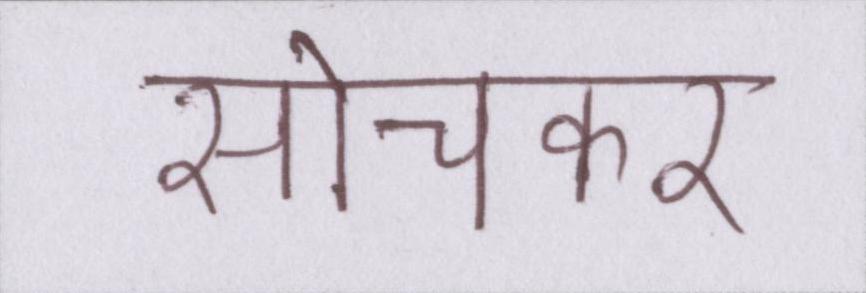 सोचकर